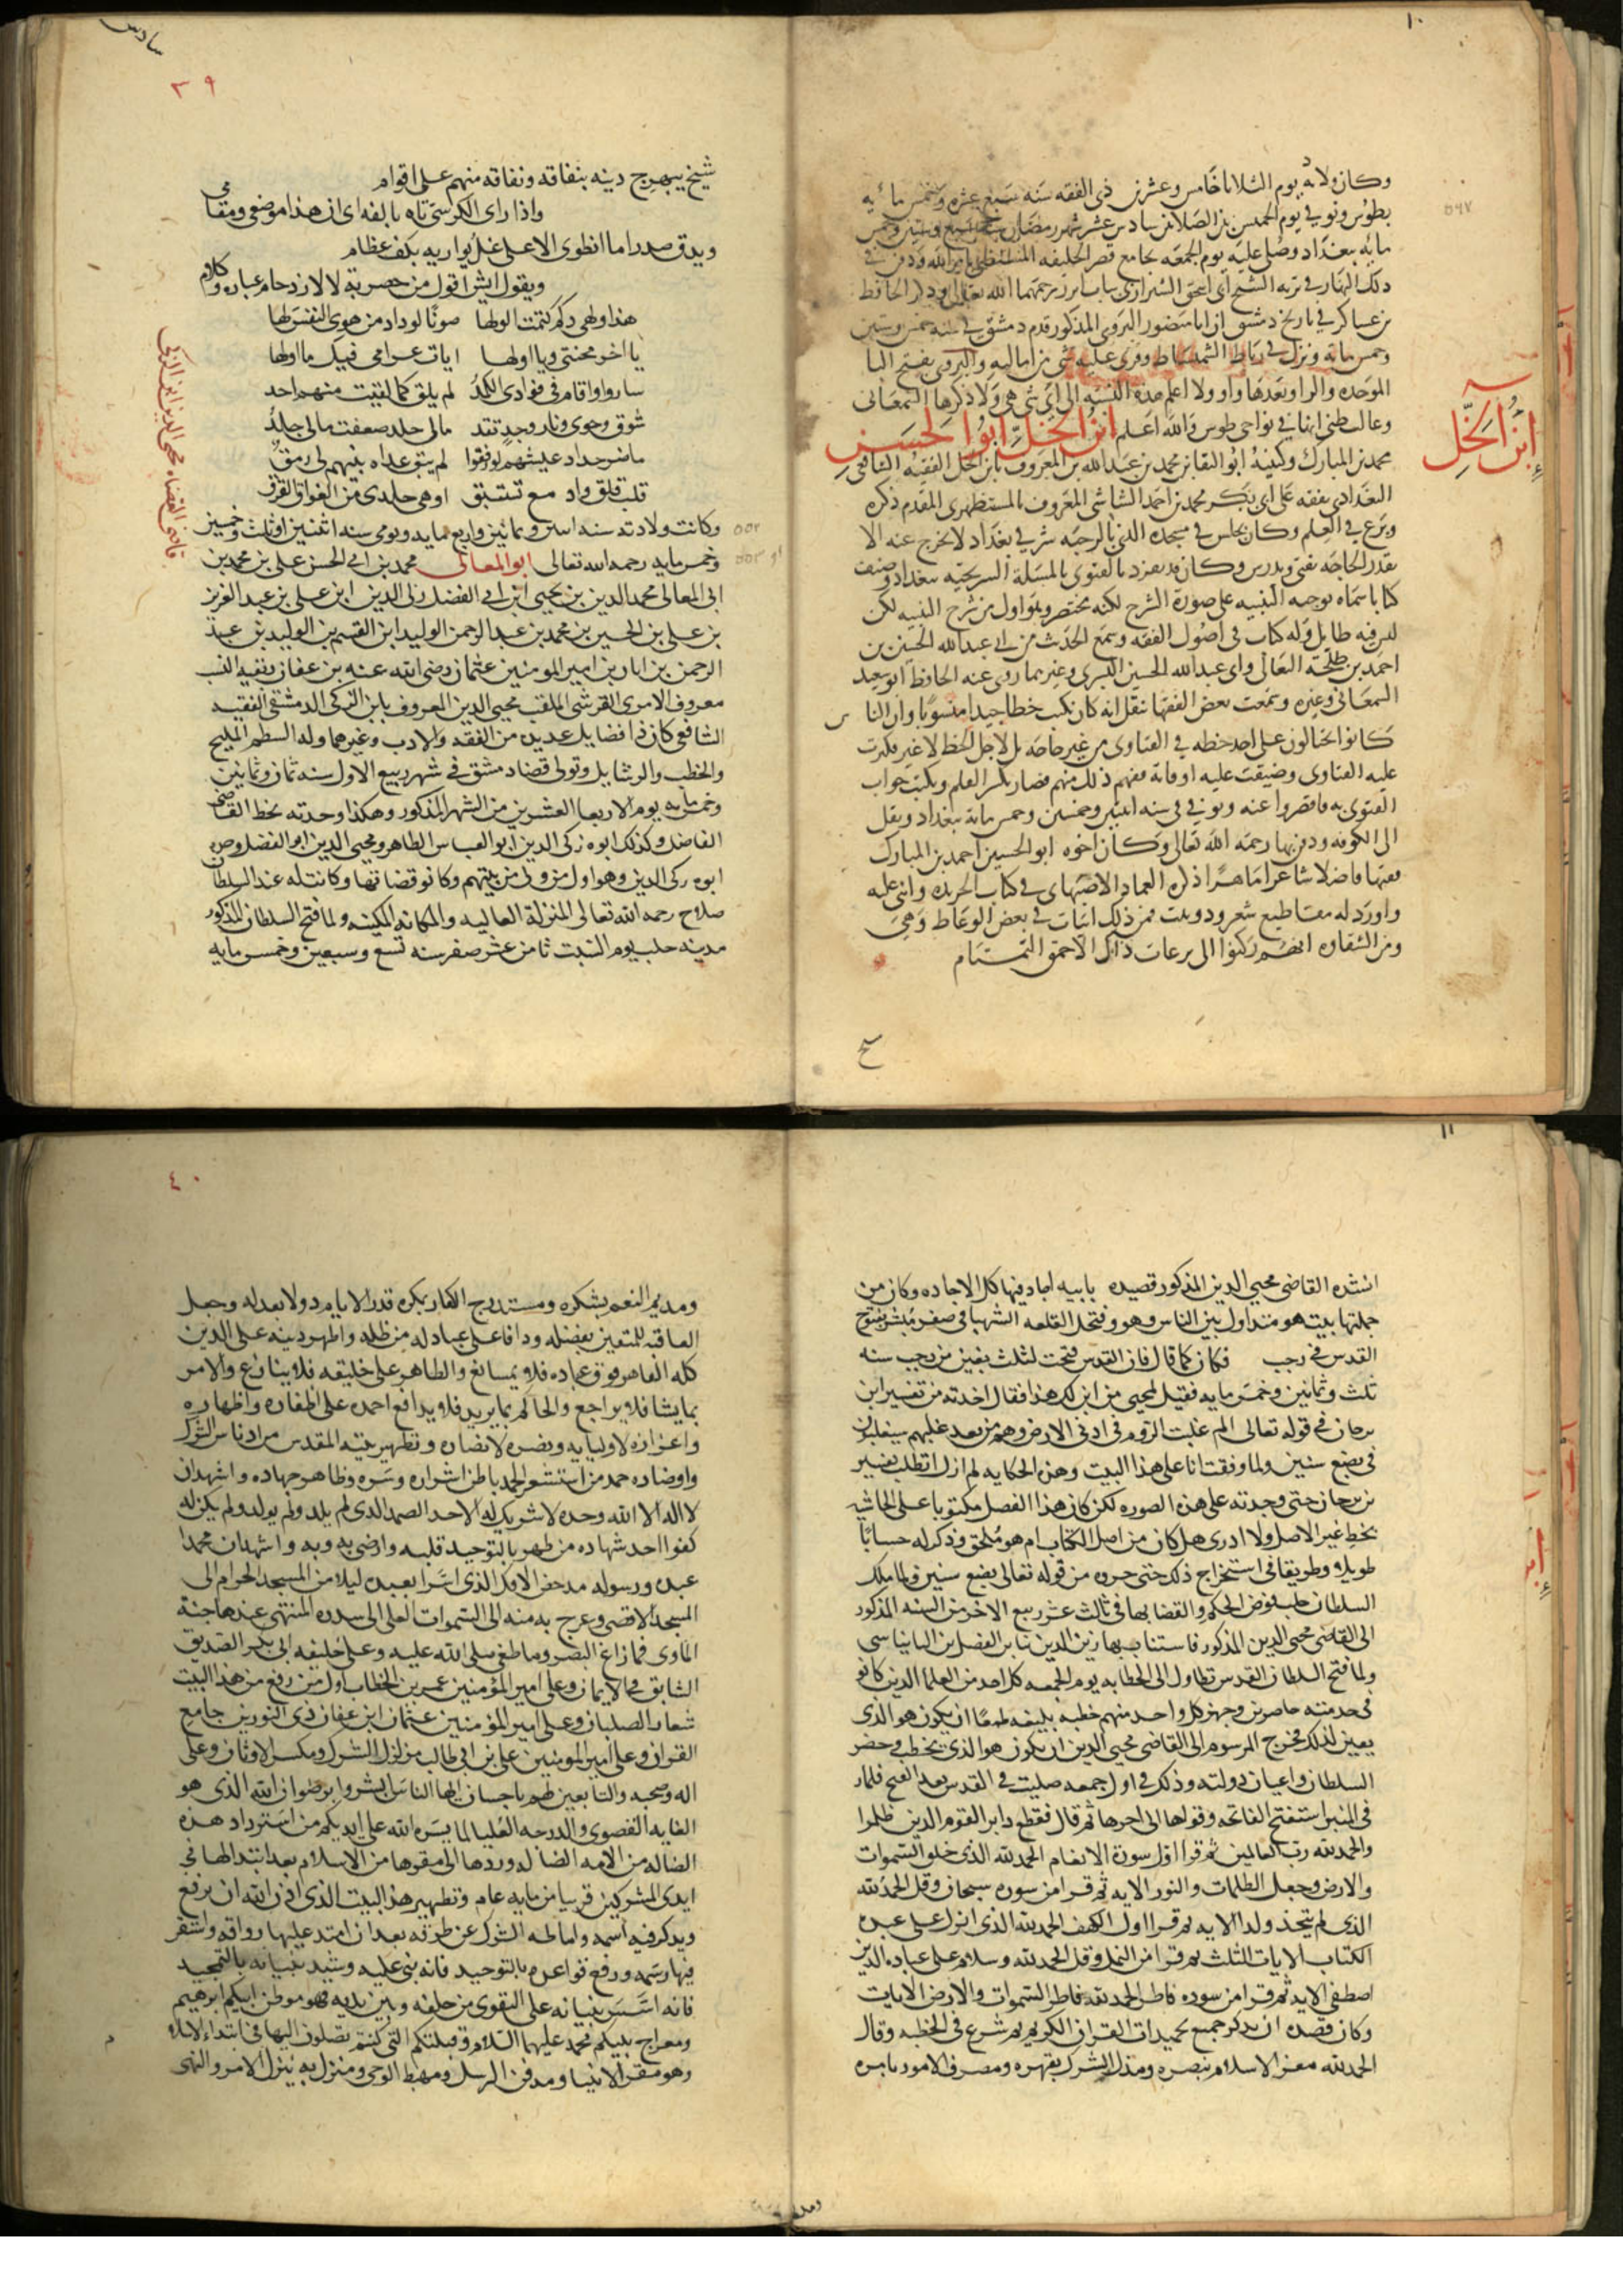 ١٠
وكان ولادته يوم الثلاثا خامس وعشرين ذى القعده سنه سبع عشره وخمس مائيه
بطوس وتوفى يوم الخميس بين الصلاتين سادس عشر شهر رمضان سنه سبع وستين وخمس
مايه ببغداد وصلى عليه يوم الجمعه بجامع قصر الخليفه المستضى بامر الله ودفن فى
ذلك النهار فى تربه الشيخ ابى اسحق الشيرازى بباب ابرز رحمهما الله تعالى وذكر الحافظ
بن عساكر فى تاريخ دمشق ان ابا منصور البروى المذكور قدم دمشق فى سنه خمس وستين
وخمس مائه ونزل فى رباط الشمشاط وقرى عليه شى من اماليه والبروى بفتح البا
الموحده والرا وبعدها واو ولا اعلم هذه النسبه الى اى شى هى ولا ذكرها السمعانى
وغالب ظنى انها فى نواحى طوس والله اعلم ابن الخلّ ابوا الحسن
محمد بن المبارك وكنيته ابو البقا بن محمد بن عبد الله بن المعروف بابن الخل الفقيه الشافعى
البغدادى تفقه على ابى بكر محمد بن احمد الشاشى المعروف بالمستظهرى المقدم ذكره
وبرع فى العلم وكان يجلس فى مسجده الذى بالرحبه شرقى بغداد لا يخرج عنه الا
بقدر الحاجه يفتى ويدرس وكان قد تفرد بالفتوى بالمسئلة السريجيه ببغداد وصنف
كتابا سماه توجيه التنبيه على صورة الشرح لكنه مختصر وهو اول من شرح التنبيه لكن
ليس فيه طايل وله كتاب فى اصول الفقه وسمع الحديث من ابى عبد الله الحسين بن
احمد بن طلحة النعالى وابى عبد الله الحسين البسرى وغيرهما روى عنه الحافظ ابو سعيد
السمعانى وغيره وسمعت بعض الفقها نقل انه كان يكتب خطا جيدا منسوبًا وان الناس
كانوا يحتالون على اخذ خطه فى الفتاوى من غير حاجه بل لاجل الخط لا غير فكثرت
عليه الفتاوى وضيقت عليه اوقاته ففهم ذلك منهم فصار يكسر القلم ويكتب جواب
الفتوى به فاقصروا عنه وتوفى فى سنه اثنين وخمسين وخمس مائة ببغداد ونقل
الى الكوفه ودفن بها رحمه الله تعالى وكان اخوه ابو الحسين احمد بن المبارك
فقيها فاضلا شاعرا ماهرًا ذكره العماد الاصبهانى فى كتاب الخريده واثنى عليه
واورد له مقاطيع شعر ودوبيت فمن ذلك ابيات فى بعض الوعاظ وهى
ومن الشقاوه انهم ركنوا الى نزعات ذاك الاحمق التمتام
٥٦٧
إبن الخَلِّ
شيخ
سادس
٣٩
شيخ يبهرج دينه بنفاقه ونفاقه منهم على اقوام
واذا راى الكرسىّ تاه بانفه اى ان هذا موضعى ومقامى
ويدق صدرا ما انطوى الا على غل يواريه بكف عظام
ويقول ايش اقول من حصر به لا لازدحام عباره وكلام
هذا ولهى وكم كتمت الولها صونًا لوداد من هوى النفس لها
يا اخر محنتى ويا اولها ايات غرامى فيك ما اولها
ساروا واقام فى فؤادى الكمدُ لم يلق كما لقيت منهم احد
شوق وجوى ونار وجد تقد مالى جلد ضعفت مالى جلدُ
ما ضر حداة عيسهم لو رفقوا لم يبق غداة بينهم لى رمقُ
قلب قلق ودمع تستبق اوهى جلدى من الفراق الفرق
وكانت ولادته سنه اثنين وثمانين واربع مايه وتوفى سنه اثنين او ثلث وخمسين
وخمس مايه رحمه الله تعالى ابو المعالى محمد بن ابى الحسن على بن محمد بن
ابى المعالى محمد الدين بن يحيى ابن ابى الفضل زكى الدين ابن على بن عبد العزيز
بن على بن الحسين بن محمد بن عبد الرحمن الوليد ابن القسم بن الوليد بن عبد
الرحمن بن ابان بن امير المومنين عثمان رضى الله عنه بن عفان بقيه النسب
معروف الاموى القرشى الملقب محيى الدين المعروف بابن الزكى الدمشقى الفقيه
الشافعى كان ذا فضايل عديده من الفقه والادب وغيرهما وله النظم المليح
والخطب والرسايل وتولى قضا دمشق فى شهر ربيع الاول سنه ثمان وثمانين
وخمس مايه يوم الاربعا العشرين من الشهر المذكور وهكذا وجدته بخط القاضى
الفاضل وكذلك ابوه زكى الدين ابو العباس الطاهر ومحيى الدين ابو الفضل وجده
ابوه زكى الدين وهو اول من ولى من بيتهم وكانو قضاتها وكانت له عند السلطان
صلاح رحمه الله تعالى المنزلة العاليه والمكانه المكينه ولما فتح السلطان المذكور
مدينه حلب يوم السبت ثامن عشر صفر سنه تسع وسبعين وخمس مايه
٥٥٢
او ٥٥٣
قاضى القضاه محى الدين ابن الزكى
١١
انشده القاضى محيى الدين المذكور قصيده بابيه اجاد فيها كل الاجاده وكان من
جملتها بيت هو متداول بين الناس وهو وفتحك القلعه الشهبا فى صفر مبشر بفتوح
القدس فى رجب فكان كما قال فان القدس فتحت لثلث بقين من رجب سنه
ثلث وثمانين وخمس مايه فقيل لمحيى من اين لك هذا فقال اخذته من تفسير ابن
برجان فى قوله تعالى الم غلبت الروم فى ادنى الارض وهم من بعد غلبهم سيغلبون
فى بضع سنين ولما وقفت انا على هذا البيت وهذه الحكايه لم ازل اتطلب تفسير
بن برجان حتى وجدته على هذه الصوره لكن كان هذا الفصل مكتوبا على الحاشيه
بخط غير الاصل ولا ادرى هل كان من اصل الكتاب ام هو ملحق وذكر له حسابًا
طويلا وطريقا فى استخراج ذلك حتى حرره من قوله تعالى بضع سنين ولما ملك
السلطان حلب فوض الحكم والقضا بها فى ثالث عشر ربيع الاخر من السنه المذكور
الى القاضى محيى الدين المذكور فاستناب بها زين الدين بنا بن الفضل بن البانياسى
ولما فتح السلطان القدس تطاول الى الخطابه يوم الجمعه كل احد من العلما الذين كانو
فى خدمته حاضرين وجهز كل واحد منهم خطبه بليغه طمعًا ان يكون هو الذى
يعين لذلك فخرج المرسوم الى القاضى محيى الدين ان يكون هو الذى يخطب وحضر
السلطان واعيان دولته وذلك فى اول جمعه صليت فى القدس بعد الفتح فلما رقى
فى المنبر استفتح الفاتحه وقراها الى اخرها ثم قال فقطع دابر القوم الذين ظلموا
والحمد لله رب العالمين ثم قرا اول سورة الانعام الحمد لله الذى خلق السموات
والارض وجعل الظلمات والنور الايه ثم قرا من سوره سبحان وقل الحمد لله
الذى لم يتخذ ولدا الايه ثم قرا اول الكهف الحمد لله الذى انزل على عبده
الكتاب الايات الثلث ثم قرا من النمل وقل الحمد لله وسلام على عباده الذين
اصطفى الايه ثم قرا من سوره فاطر الحمد لله فاطر السموات والارض الايات
وكان قصده ان يذكر جميع تحميدات القران الكريم ثم شرع فى الخطبه وقال
الحمد لله معز الاسلام بنصره ومذل الشرك بقهره ومصرف الامور بامره
٤٠
ومديم النعم بشكره ومستدرج الكفار بمكره قدر الايام دولا بعدله وجعل
العاقبه للمتقين بفضله وافاء على عباده من ظله واظهر دينه على الدين
كله القاهر فوق عباده فلا يمانع والظاهر على خليقه فلا ينازع والامر
بما يشا فلا يراجع والحاكم بما يريد فلا يدافع احمده على اظفاره واظهاره
واعزازه لاوليايه ونصره لانصاره وتطهير بيته المقدس من ادناس الشرك
واوضاره حمد من استشعر الحمد باطن اشراره وسره وظاهر جهاده واشهد ان
لا اله الا الله وحده لا شريك له الاحد الصمد الذى لم يلد ولم يولد ولم يكن له
كفوا احد شهاده من طهر بالتوحيد قلبه وارضى به ربه واشهد ان محمدا
عبده ورسوله مدحض الافك الذى اسرا بعبده ليلا من المسجد الحرام الى
المسجد الاقصى وعرج به منه الى السموات العلى الى سدره المنتهى عندها جنة
الماوى فما زاغ البصر وما طغى صلى الله عليه وعلى خليفه ابى بكر الصديق
السابق فى الايمان وعلى امير المؤمنين عمر بن الخطاب اول من رفع من هذا البيت
شعار الصلبان وعلى امير المؤمنين عثمان ابن عفان ذى النورين جامع
القران وعلى امير المومنين على بن ابى طالب مزلزل الشرك ومكسر الاوثان وعلى
اله وصحبه والتابعين لهم باحسان ايها الناس ابشروا برضوان الله الذى هو
الغايه القصوى والدرجه العليا لما يسره الله على ايديكم من استرداد هذه
الضاله من الامه الضاله وردها الى مقرها من الاسلام بعد ابتذالها فى
ايدى المشركين قريبا من مايه عام وتطهير هذا البيت الذى اذن الله ان يرفع
ويذكر فيه اسمه واماطه الشرك عن طرقه بعد ان امتد عليها رواقه واستقر
فيها رسمه ورفع قواعده بالتوحيد فانه بنى عليه وشيد بنيانه بالتمجيد
فانه اسس بنيانه على التقوى من خلفه ومن بين يديه فهو موطن ابيكم ابرهيم
ومعراج نبيكم محمد عليهما السلام وقبلتكم التى كنتم تصلون اليها فى ابتداء الاسلام
وهو مقر الانبيا ومدفن الرسل ومهبط الوحى ومنزل به ينزل الامر والنهى